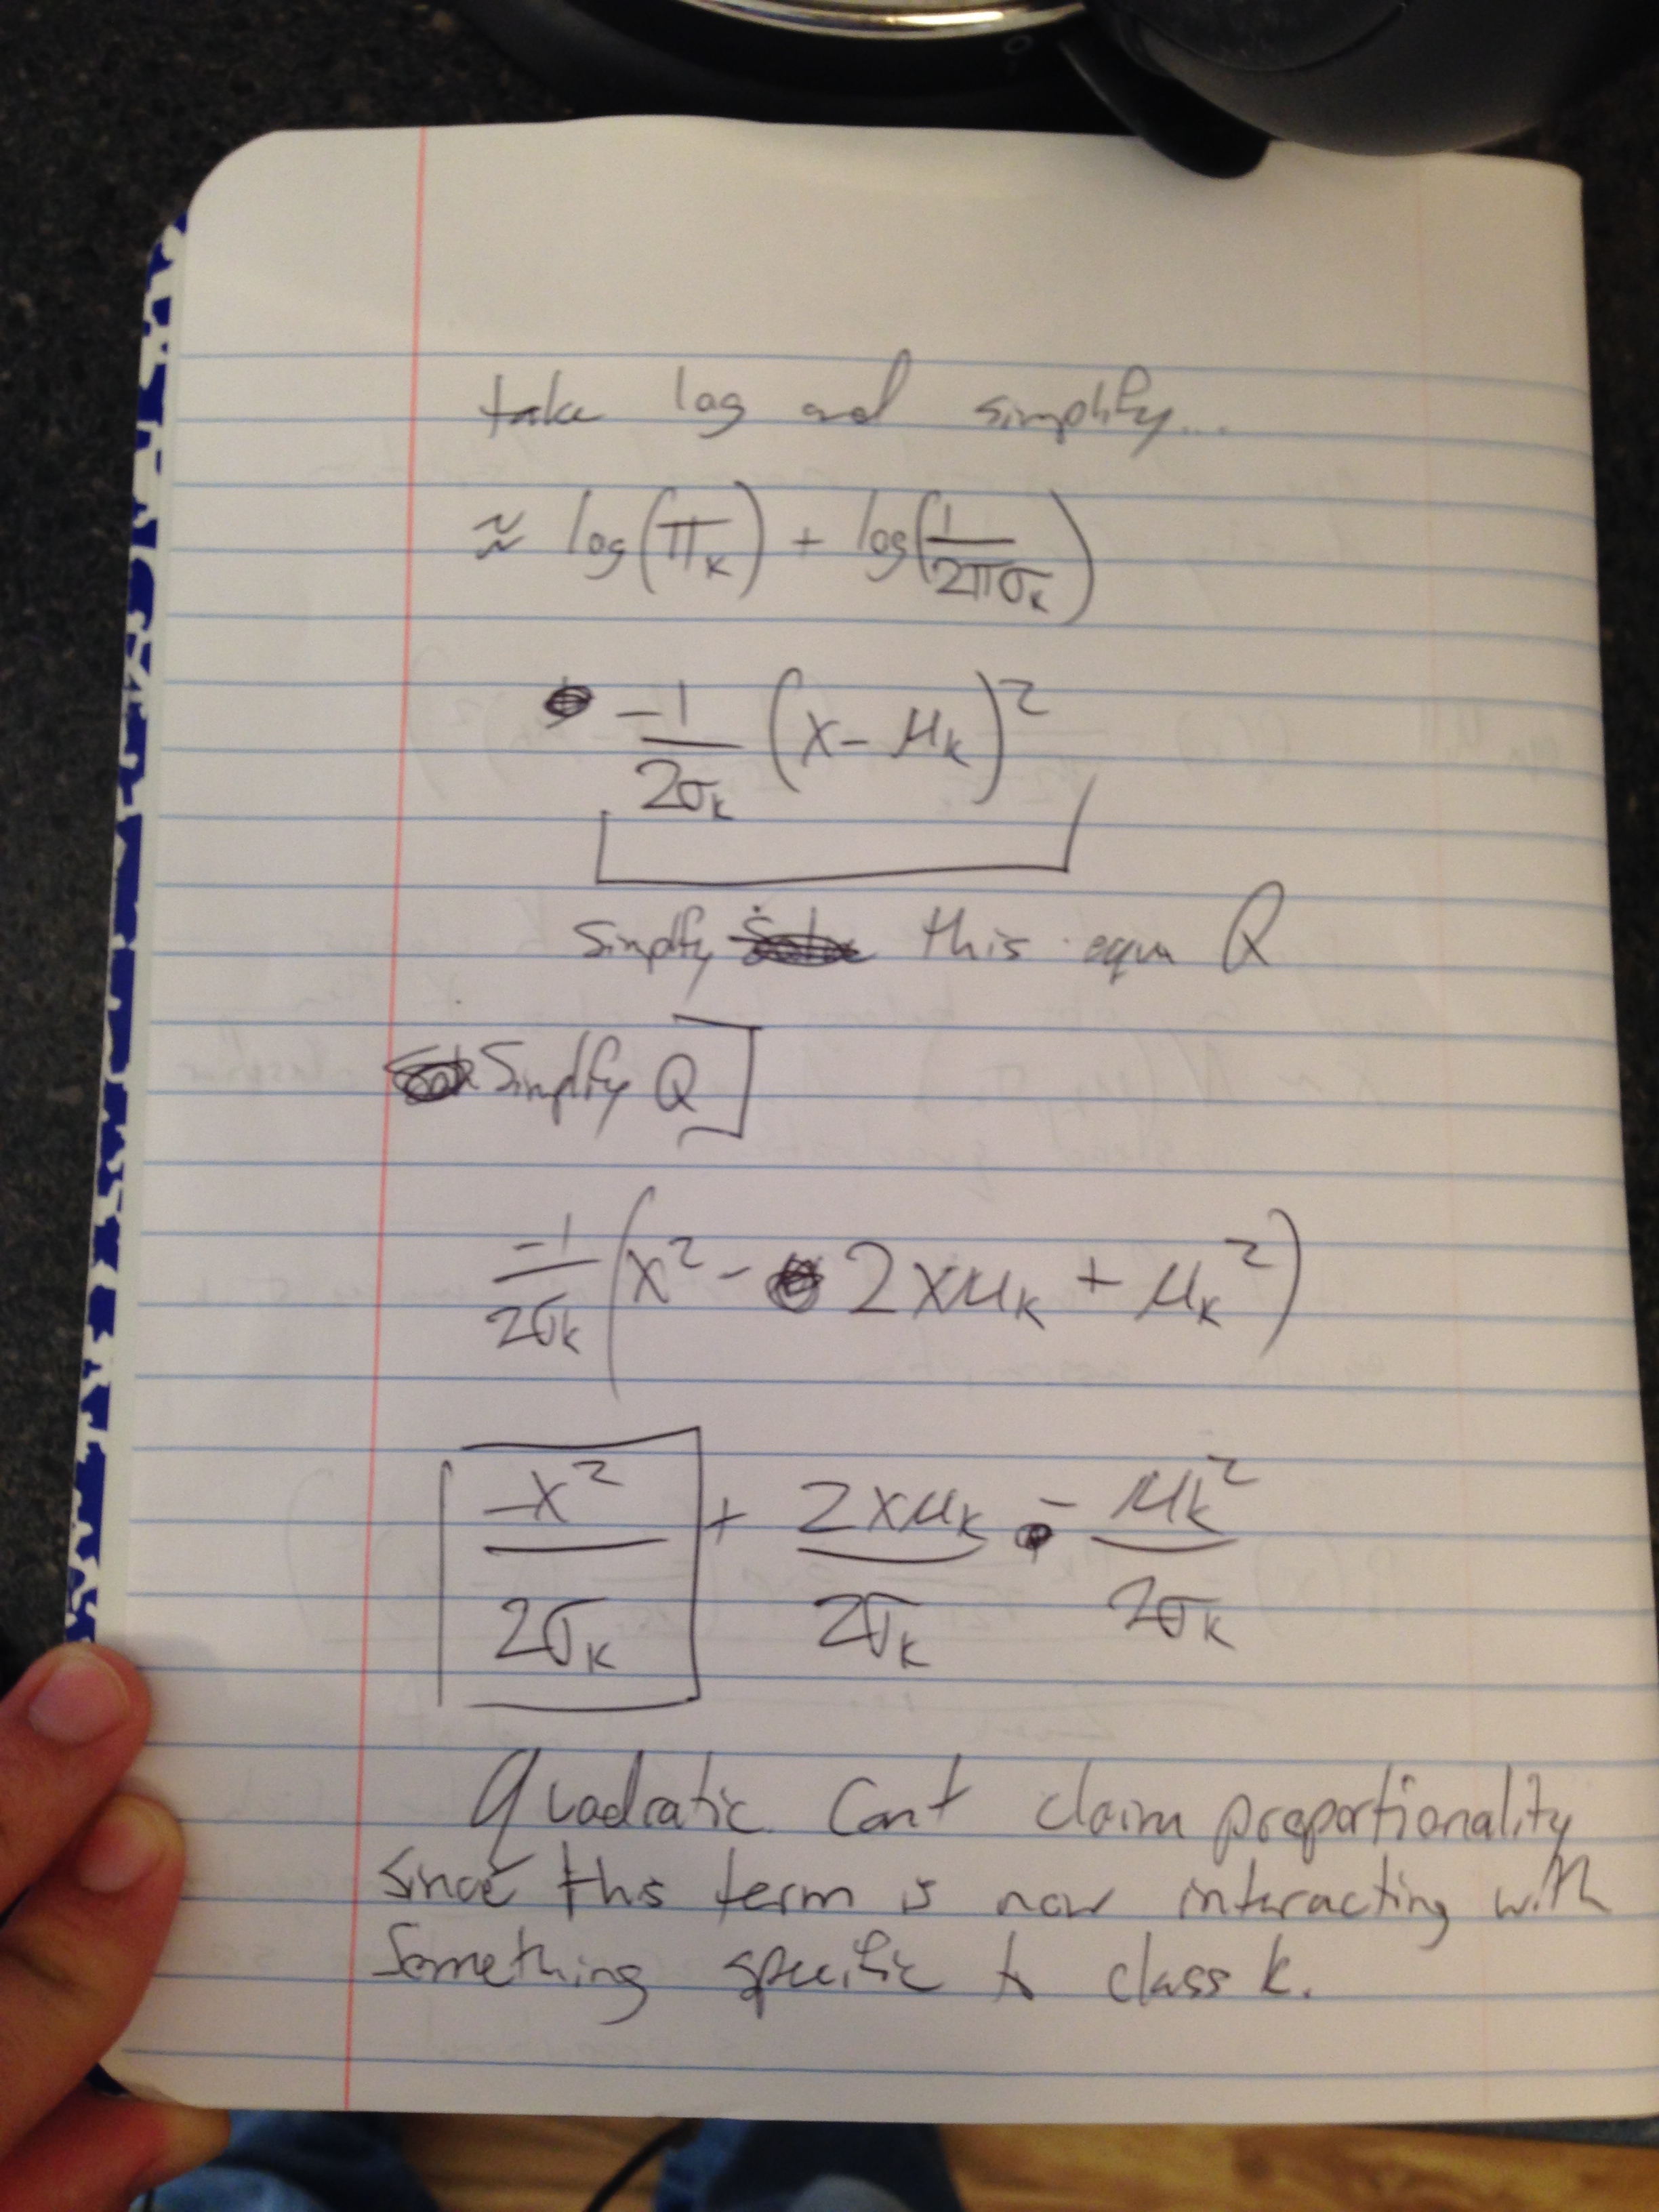 take log and simplify...
≈ log(π_k) + log(1/2πσ_k)
-1/2σ_k (x - μ_k)²
simplify this equn Q
Simplify Q
-1/2σ_k (x² - 2xμ_k + μ_k²)
-x²/2σ_k + 2xμ_k/2σ_k - μ_k²/2σ_k
Quadratic. Cant claim proportionality
since this term is now interacting with
Something specific to class k.